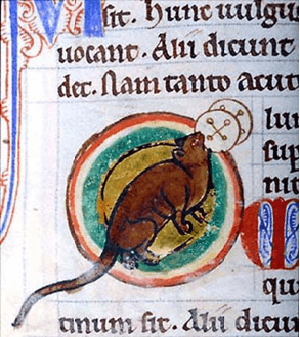 sit. Hunc uulgu
uocant. Alii dicunt
det. Nam tanto acut
lum
sup
nit
qu
tinum sit. Alii dicun